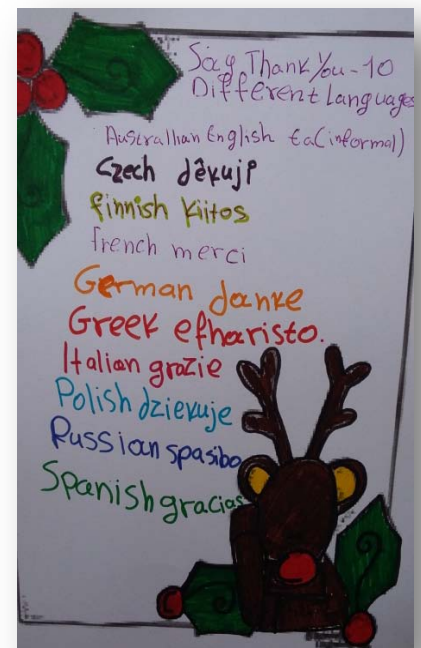 Say Thank You - 10
Different Languages
Australlian English ta(informal)
Czech děkuji
finnish kiitos
french merci
German danke
Greek efharisto.
Italian grazie
Polish dziekuje
Russian spasibo
Spanish gracias